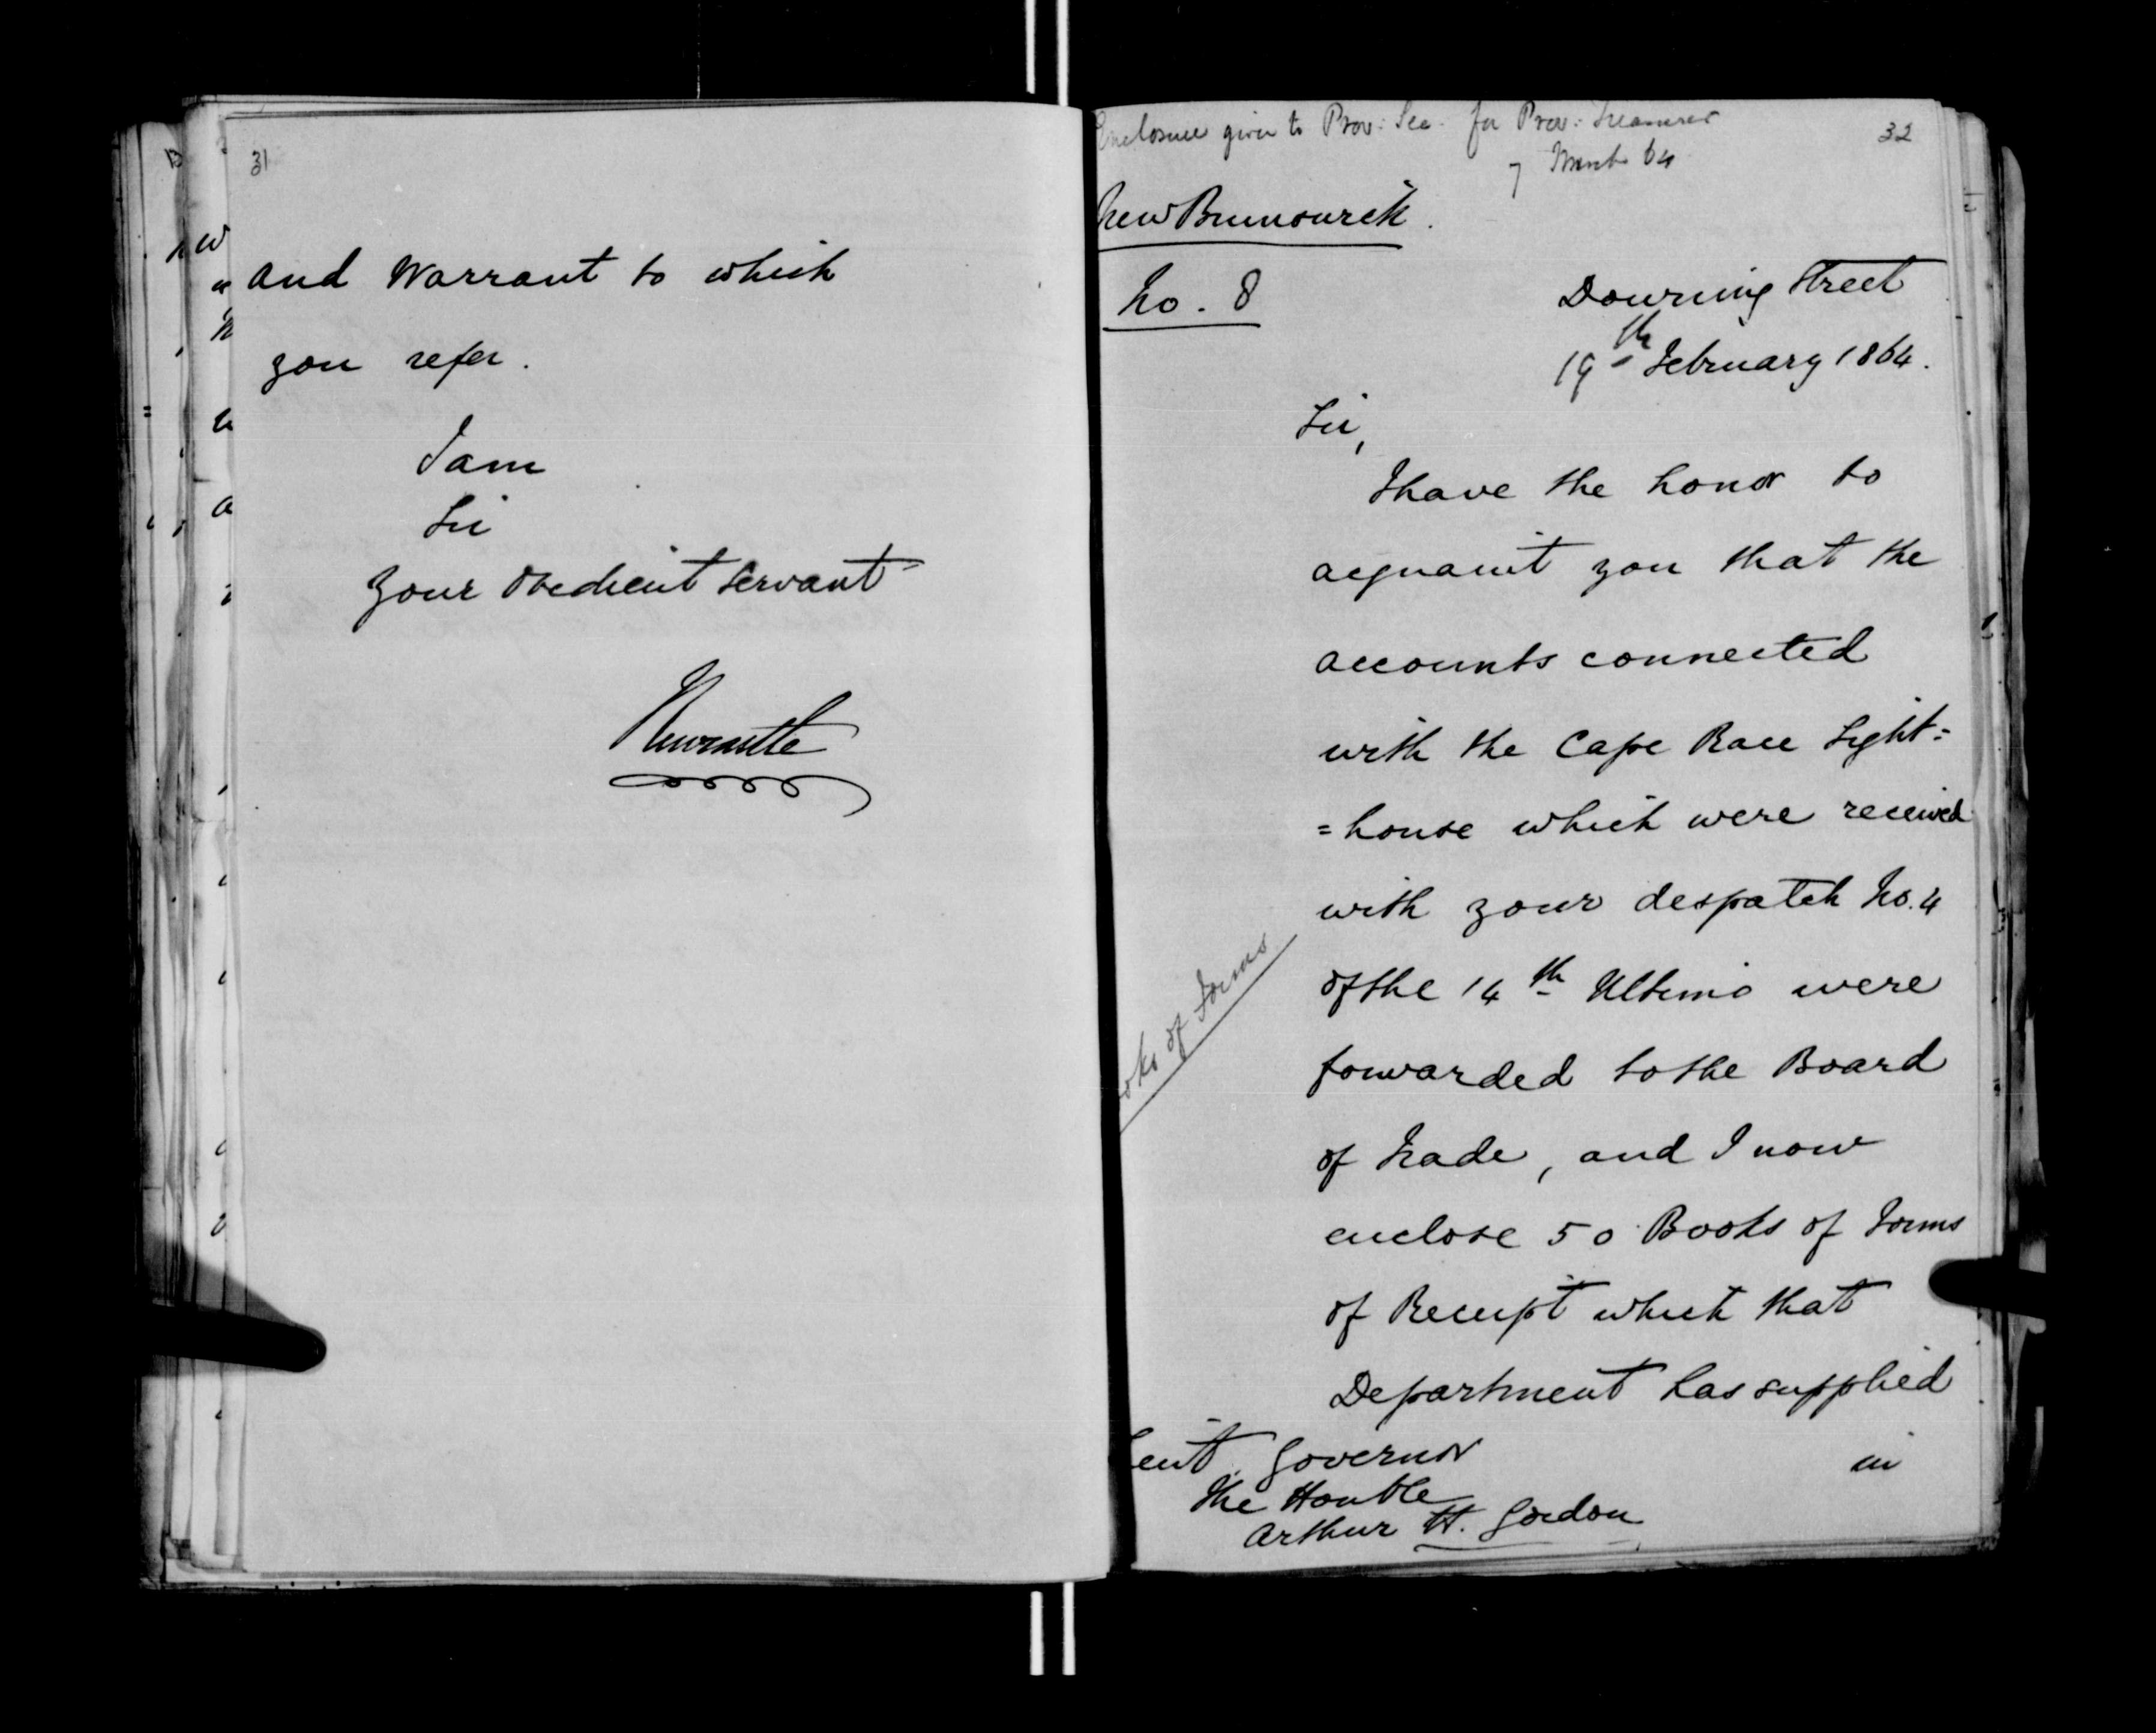 31
and Warrant to which
you refer.
I am
Sir
Your obedient Servant
Newcastle
Enclosure given to Prov: Sec. for Prov: Treasurer
32
7 March 64
New Brunswick.
No. 8
Downing Street
19th February 1864.
Sir,
I have the honor to
acquaint you that the
accounts connected
with the Cape Race Light=
=house which were received
with your despatch No. 4
of the 14th Ultimo were
forwarded to the Board
of Trade, and I now
enclose 50 Books of Forms
of Receipt which that
Department has supplied
in
of Forms
Governor
The Honble
Arthur H. Gordon